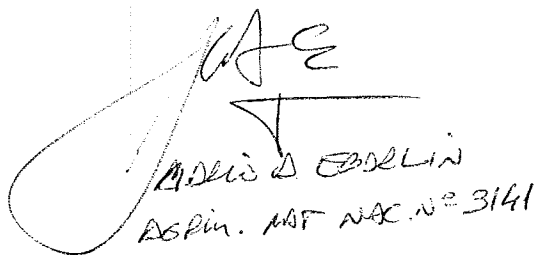 MARIO A EBARLIN
AGRIM. MAT NAC. Nº 3141